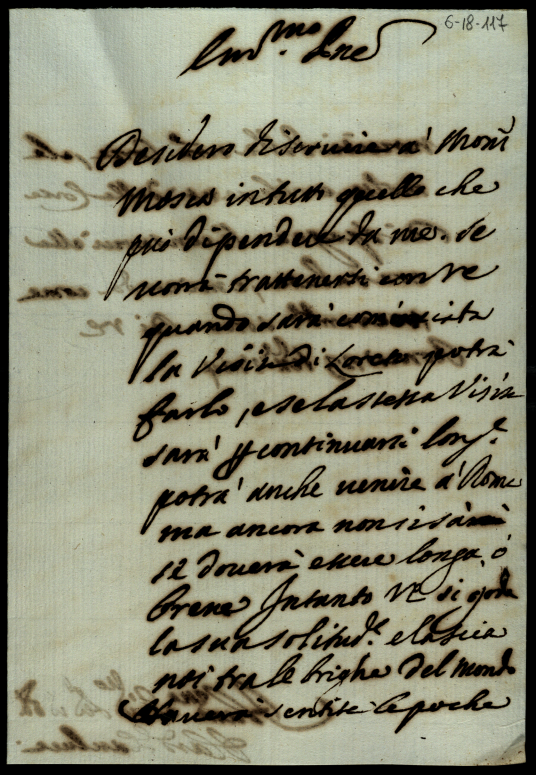 6-18-117
Ill.mo Sre
Desidero di servire a' Mons.
Mosca in tutto quello che
può dipendere da me. Se
vorrà trattenersi con VE
quando sarà comincista
la Visita di Loreto potrà
farlo, e se la stessa Visita
sarà p continuarsi long.e
potrà anche venire à Roma
ma ancora non si sà
se doverà essere longa, ò
breve Intanto VE si goda
la sua solitud.e e lascia
noi tra le brighe del mondo
Haverà sentite le poche